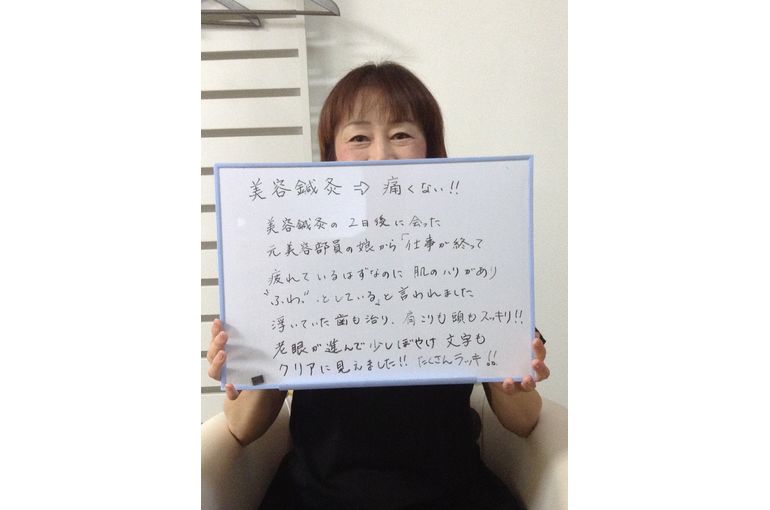 美容鍼灸 ⇨ 痛くない!!
美容鍼灸の2日後に会った
元美容部員の娘から「仕事が終って
疲れているはずなのに 肌のハリがあり
"ふわ"としている」と言われました
浮いていた歯も治り、肩こりも頭もスッキリ!!
老眼が進んで少しぼやけ文字も
クリアに見えました!! たくさんラッキ!!